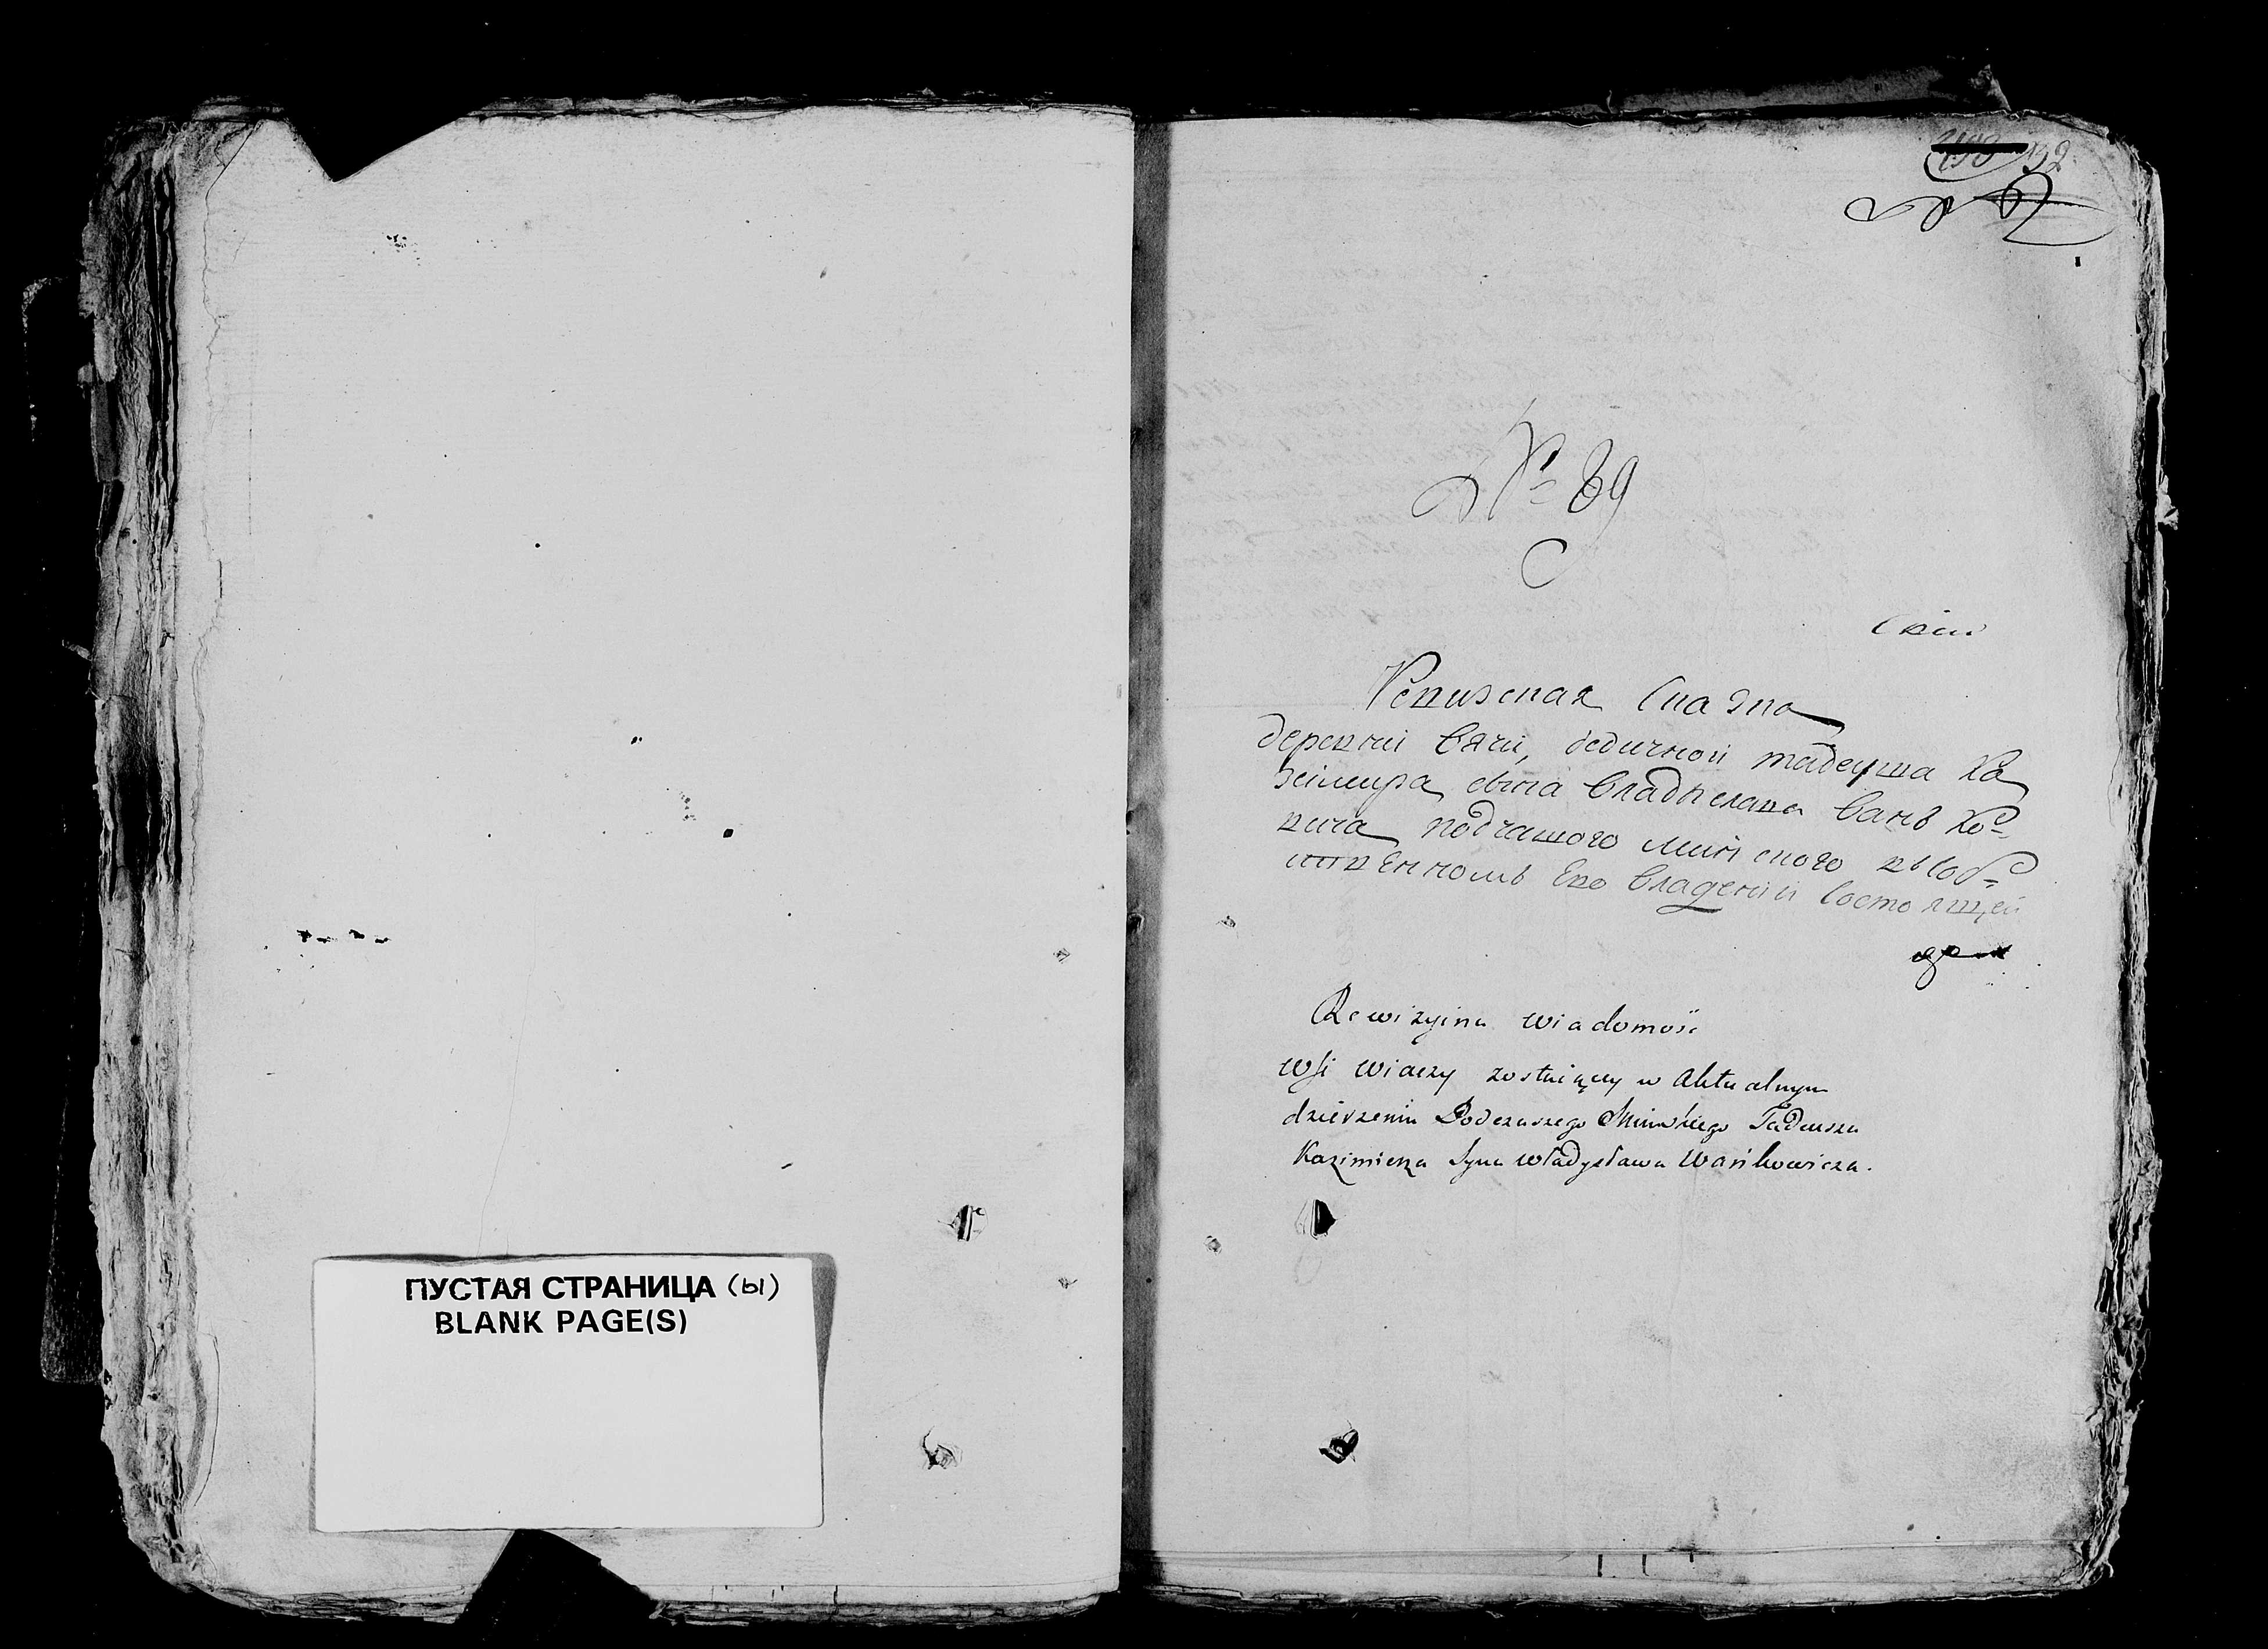 ПУСТАЯ СТРАНИЦА (ы)
BLANK PAGE(S)
192
№ 89
Ревизская Сказка
деревни Вячи, дедичной тадеуша Ка
зімира сына Владислава Ванъ Ко-
вича подчашого минского въ Соб-
ственномъ Ево Владении Состоящей
Rewizyina wiadomość
wsi Wiaczy zostaiącey w Aktualnym
dzierżeniu Podczaszego Minskiego Tadeusza
Kazimierza Syna Władysława Wańkowicza.